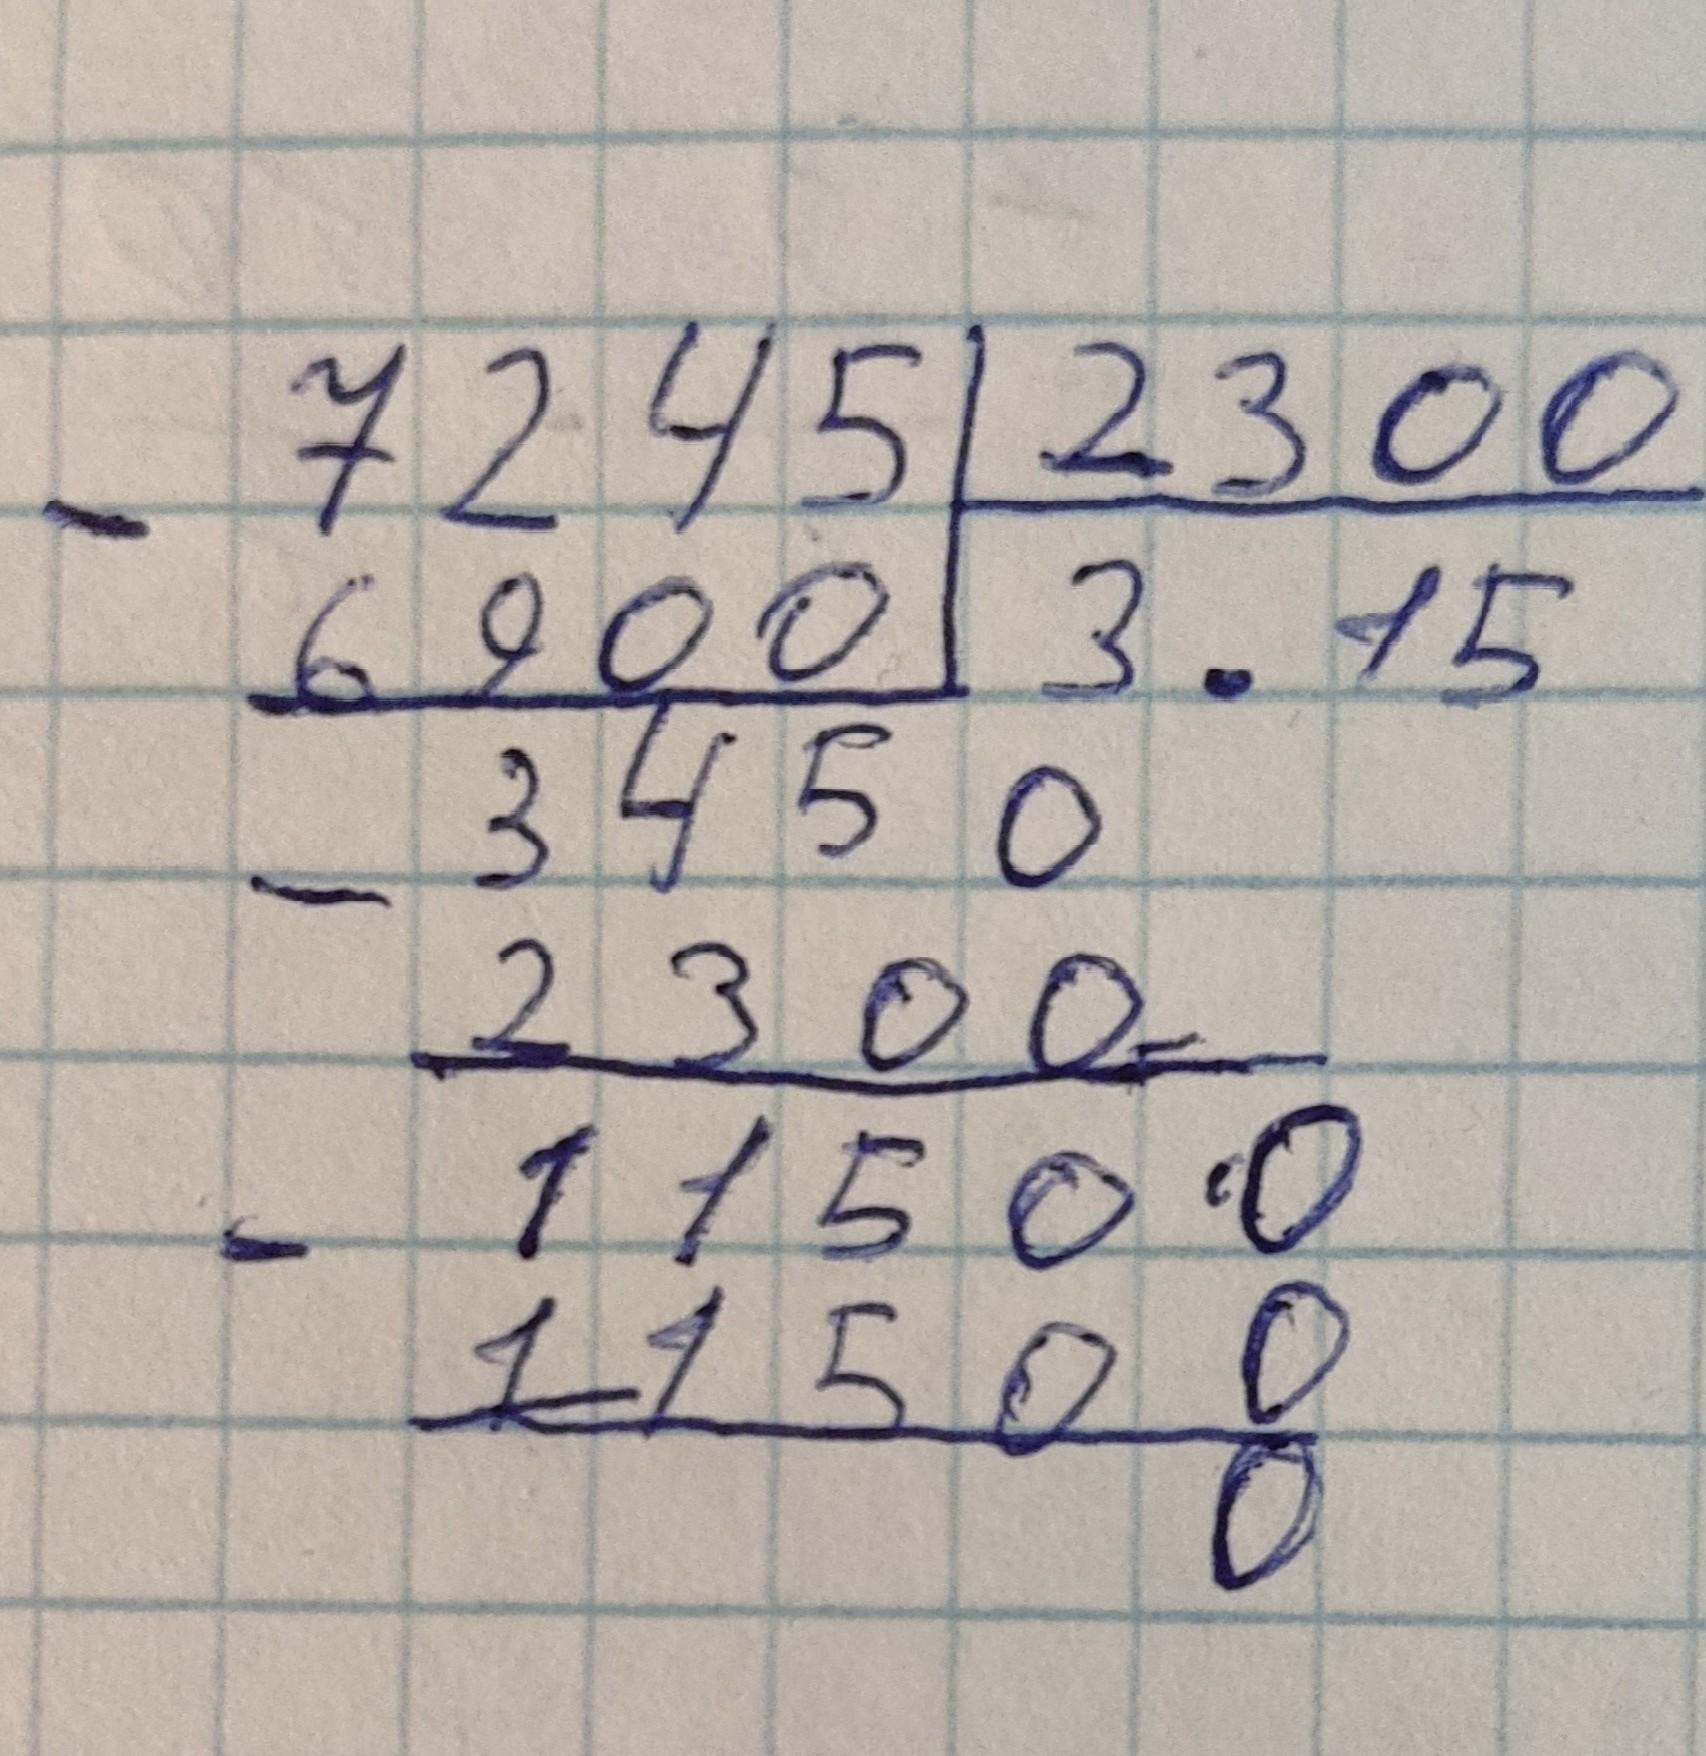 - 7245 | 2300
6900 | 3.15
- 3450
2300
- 11500
11500
0